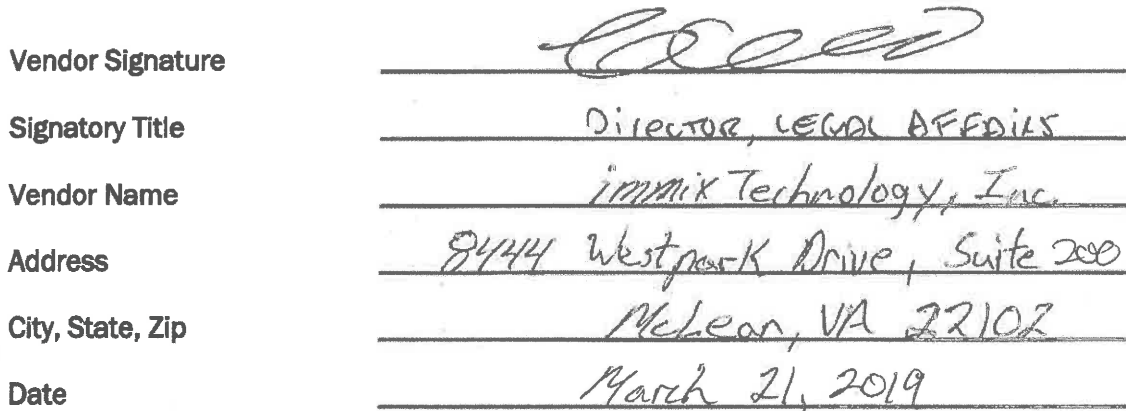 Vendor Signature
Signatory Title Director, LEGAL AFFAIRS
Vendor Name immixTechnology, Inc.
Address 8444 Westpark Drive, Suite 200
City, State, Zip McLean, VA 22102
Date March 21, 2019